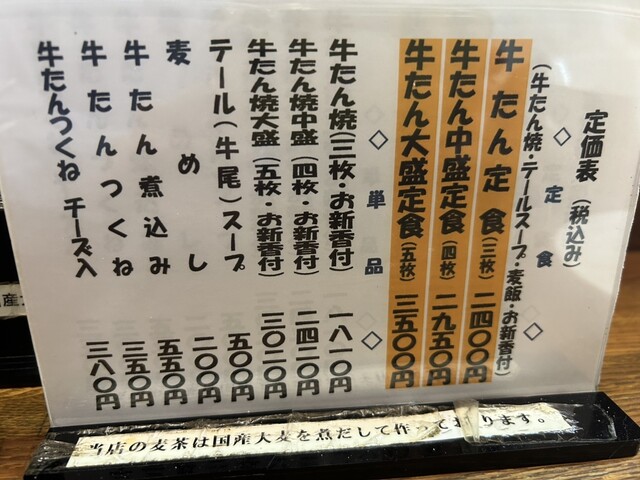 定価表(税込み)
◇定食◇
(牛たん焼・テールスープ・麦飯・お新香付)
牛たん定食(三枚) 二四〇〇円
牛たん中盛定食(四枚) 二九五〇円
牛たん大盛定食(五枚) 三五〇〇円
◇単品◇
牛たん焼(三枚・お新香付) 一八一〇円
牛たん焼中盛(四枚・お新香付) 二四二〇円
牛たん焼大盛(五枚・お新香付) 三〇二〇円
テール(牛尾)スープ 五〇〇円
麦めし 二〇〇円
牛たん煮込み 五五〇円
牛たんつくね 三五〇円
牛たんつくねチーズ入 三八〇円
当店の麦茶は国産大麦を煮だして作っております。